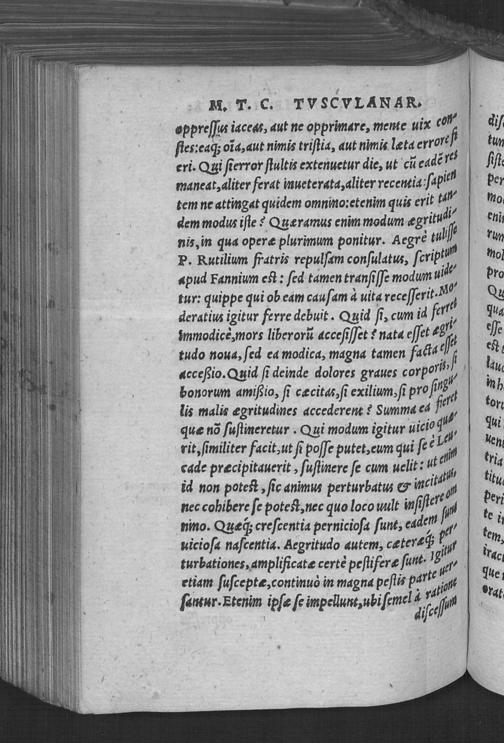 M. T. C. TVSCVLANAR.
oppressus iaceas, aut ne opprimare, mente uix con-
stes: eaq; oĩa, aut nimis tristia, aut nimis læta errore fi
eri. Qui si error stultis extenuetur die, ut cũ eadẽ res
maneat, aliter ferat inueterata, aliter recentia: sapien
tem ne attingat quidem omnino: etenim quis erit tan-
dem modus iste? Quæramus enim modum ægritudi-
nis, in qua operæ plurimum ponitur. Aegrè tulisse
P. Rutilium fratris repulsam consulatus, scriptum
apud Fannium est: sed tamen transisse modum uide-
tur: quippe qui ob eam causam à uita recesserit. Mo-
deratius igitur ferre debuit. Quid si, cum id ferret
immodicè, mors liberorũ accesisset? nata esset ægri-
tudo noua, sed ea modica, magna tamen facta esset
accessio. Quid si deinde dolores graues corporis, si
bonorum amissio, si cæcitas, si exilium, si pro singu-
lis malis ægritudines accederent? Summa ea fieret
quæ nõ sustineretur. Qui modum igitur uicio quæ-
rit, similiter facit, ut si posse putet, eum qui se è Leu-
cade præcipitauerit, sustinere se cum uelit: ut enim
id non potest, sic animus perturbatus & incitatus,
nec cohibere se potest, nec quo loco uult insistere om
nino. Quæq; crescentia perniciosa sunt, eadem sunt
uiciosa nascentia. Aegritudo autem, cæteræq; per-
turbationes, amplificatæ certè pestiferæ sunt. Igitur
etiam susceptæ, continuò in magna pestis parte uer-
santur. Etenim ipsæ se impellunt, ubi semel à ratione
discessum